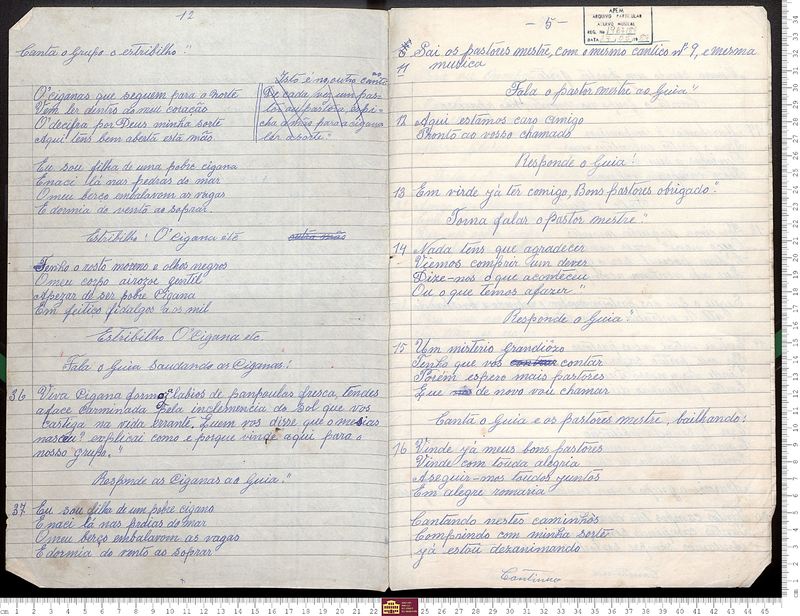 12
Canta o Grupo o estribilho"
Isto é no outro canto
O'ciganas que seguem para o norte
Vem ler dentro do meu coração
O'decifra por Deus minha sorte
Aqui tens bem aberta está mão.
De cada vez um pas-
tôr ou pastôra, espi-
cha a mão para a cigana
ler a sorte."
Eu sou filha de uma pobre cigana
E naci lá nas pedras do mar
O meu berço embalavam as vagas
E dormia do vento ao soprar.
Estribilho! O'Cigana etc
outra mão
Tenho o rosto moreno e olhos negros
O meu corpo airoze gentil
Apezar de ser pobre Cigana
Em feitiço fidalgos a os mil
Estribilho O'Cigana etc.
Fala o Guia saudando as Ciganas!
36 Viva Cigana formoza labios de panpoulas fresca, tendes
a face carminada pela inclemencia do Sol que vos
castiga na vida errante. Quem vos disse que o messias
nasceu? explicai como e porque vinde aqui para o
nosso grupo."
Responde as Ciganas ao Guia."
37 Eu sou filha de um pobre cigano
E naci lá nas praias do mar
O meu berço embalavam as vagas
E dormia do vento ao soprar
- 5 -
APEM
ARQUIVO PARTICULAR
ACERVO MUSICAL
REG. Nº
DATA
11 Sai os pastores mestre, com o mesmo cantico nº 9, e mesma
musica
Fala o pastor mestre ao Guia"
12 Aqui estâmos caro amigo
Pronto ao vosso chamado
Responde o Guia!
13 Em virde já ter comigo, Bons pastores obrigado".
Torna falar o Pastor mestre."
14 Nada tens que agradecer
Viemos comprir um dever
Dize-nos o que aconteceu
Ou o que temos a fazer"
Responde o Guia".
15 Um misterio grandiôzo
Tenho que vos contar
Porém espero mais pastores
E eu de novo vou chamar
Canta o Guia e os pastores mestre, bailhando!
16 Vinde já meus bons pastores
Vinde com touda alegria
A seguir-mos toudos juntos
Em alegre romaria
Cantando nestes caminhos
Comprindo com minha sorte
já estou dezanimando
Continua